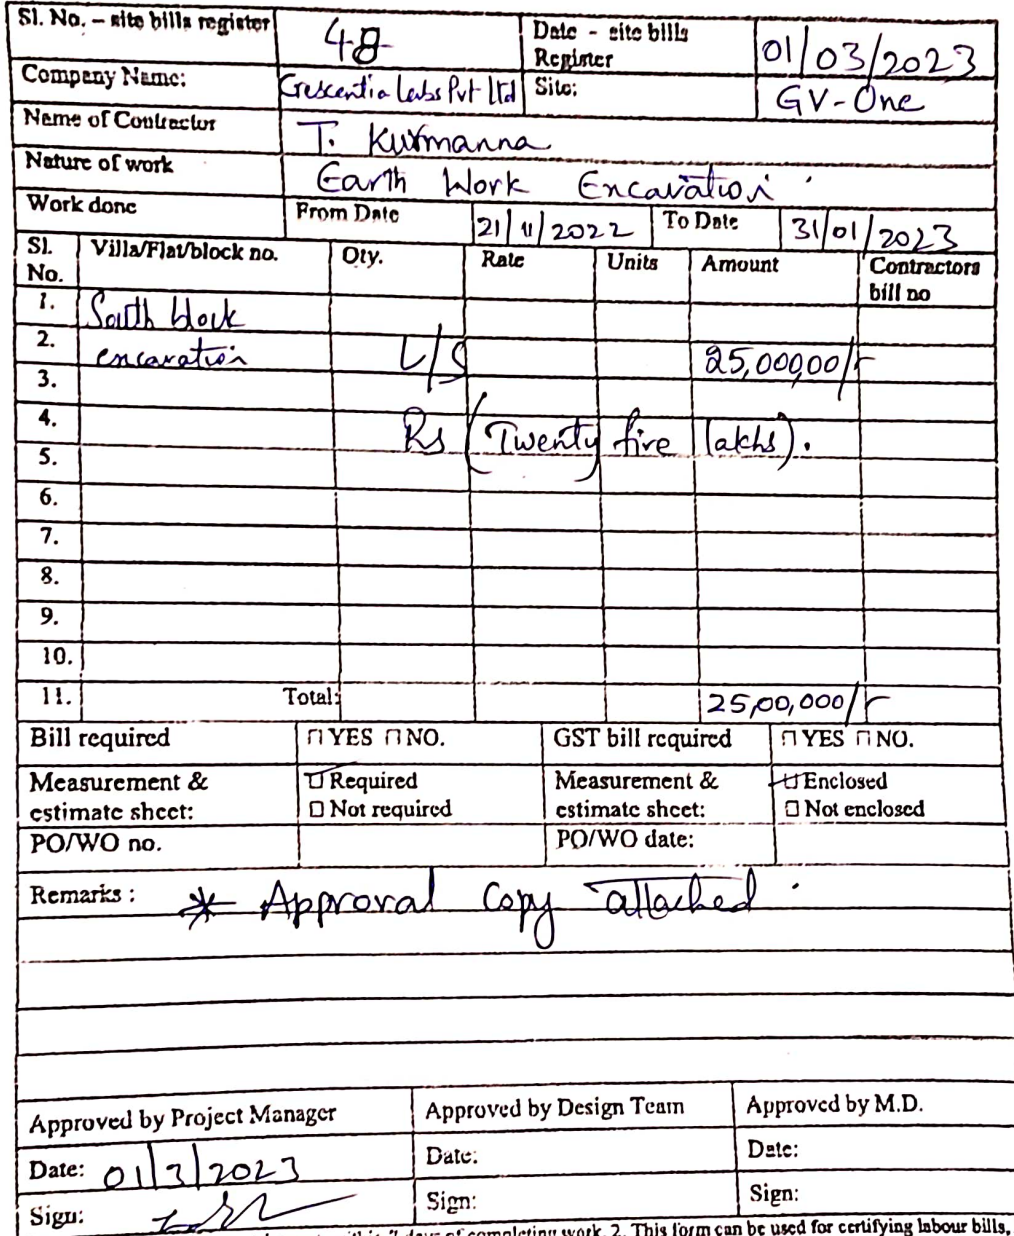 Sl. No. – site bills register 48 Date - site bills Register 01/03/2023
Company Name: Crescentia Labs Pvt Ltd Site: GV-One
Name of Contractor T. Kurmanna
Nature of work Earth Work Encavation
Work done From Date 21/11/2022 To Date 31/01/2023
Sl. No. Villa/Flat/block no. Qty. Rate Units Amount Contractors bill no
1. South block
2. encavation L/S 25,00,000/-
3.
4. Rs (Twenty five lakhs).
5.
6.
7.
8.
9.
10.
11. Total: 25,00,000/-
Bill required YES NO. GST bill required YES NO.
Measurement & estimate sheet: Required Not required Measurement & estimate sheet: Enclosed Not enclosed
PO/WO no. PO/WO date:
Remarks : * Approval Copy attached.
Approved by Project Manager Approved by Design Team Approved by M.D.
Date: 01/3/2023 Date: Date:
Sign: Sign: Sign:
days of completing work. 2. This form can be used for certifying labour bills,